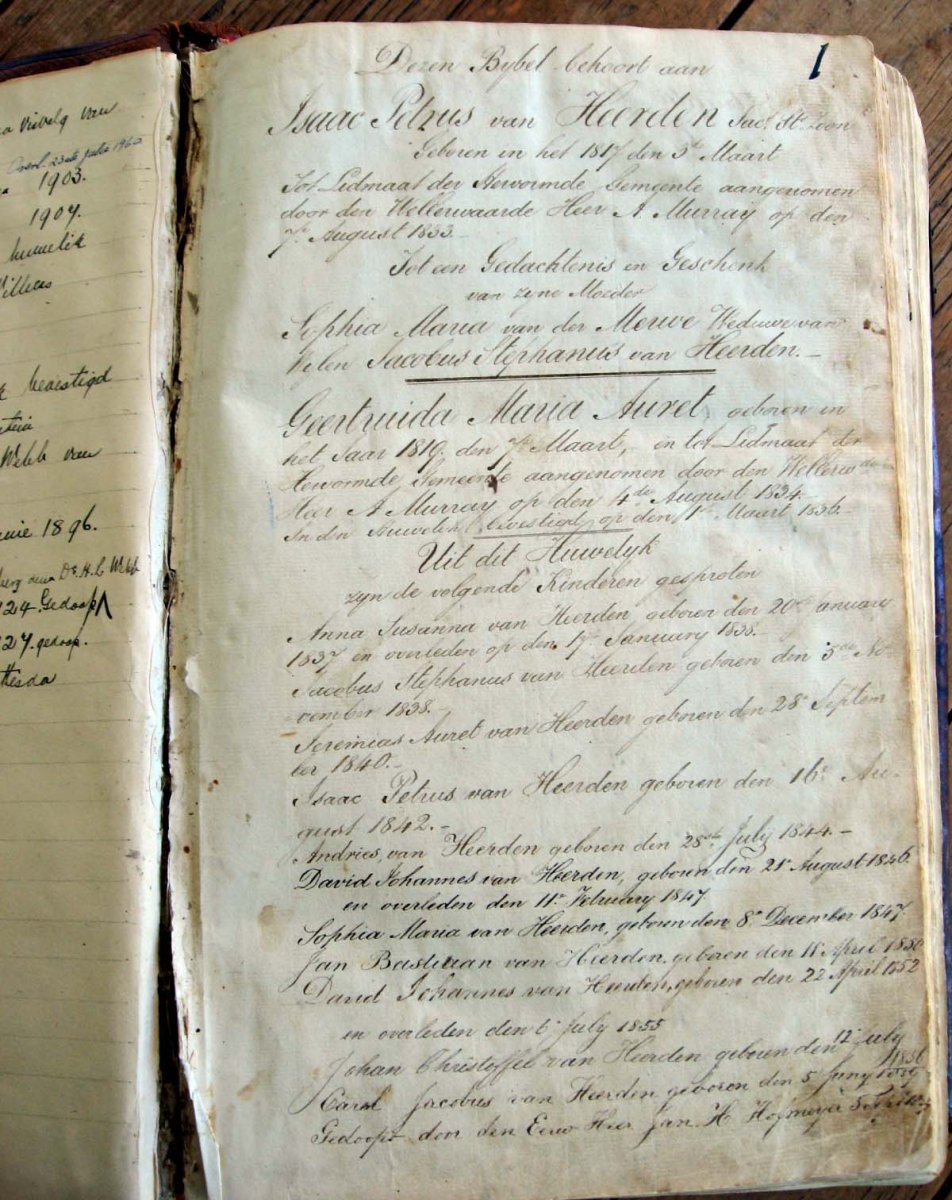 a
van
Overl. 23 de
1903.
1907.
huwelik
bevestigd
Webb van
1896.
Dr. H. L. Webb
24. Gedoop
27. gedoop.
1
Dezen Bybel behoort aan
Isaac Petrus van Heerden Jac. St. Zoon
Geboren in het 1817 den 3e Maart
Tot Lidmaat der Hervormde Gemeente aangenomen
door den WelEerwaarde Heer A. Murray op den
7e August 1833.-
Tot een Gedachtenis en Geschenk
van zyne Moeder
Sophia Maria van der Merwe Weduwe van
Wylen Jacobus Stephanus van Heerden.-
Geertruida Maria Auret, geboren in
het Jaar 1819. den 7e Maart, en tot Lidmaat der
Hervormde Gemeente aangenomen door den WelEerwde
Heer A Murray op den 4de August 1834.-
In den Huwelyk bevestigd op den 1e Maart 1836.-
Uit dit Huwelyk
zyn de volgende Kinderen gesproten
Anna Susanna van Heerden geboren den 20e anuary
1837 en overleden op den 17e January 1838.-
Jacobus Stephanus van Heerden geboren den 3de No-
vember 1838.-
Jeremias Auret van Heerden geboren den 28e Septem
ber 1840.-
Isaac Petrus van Heerden geboren den 16e Au-
gust 1842.-
Andries van Heerden geboren den 28ste July 1844.-
David Johannes van Heerden, geboren den 21e August 1846.
en overleden den 11e February 1847
Sophia Maria van Heerden, geboren den 8e December 1847.
Jan Bastiaan van Heerden, geboren den 11e April 1850
David Johannes van Heerden, geboren den 22 April 1852
en overleden den 6e July 1855
Johan Christoffel van Heerden geboren den 12e July
1856
Carel Jacobus van Heerden geboren den 5e Juny
Gedoopt door den Eerw Heer Jan H Hofmeyer